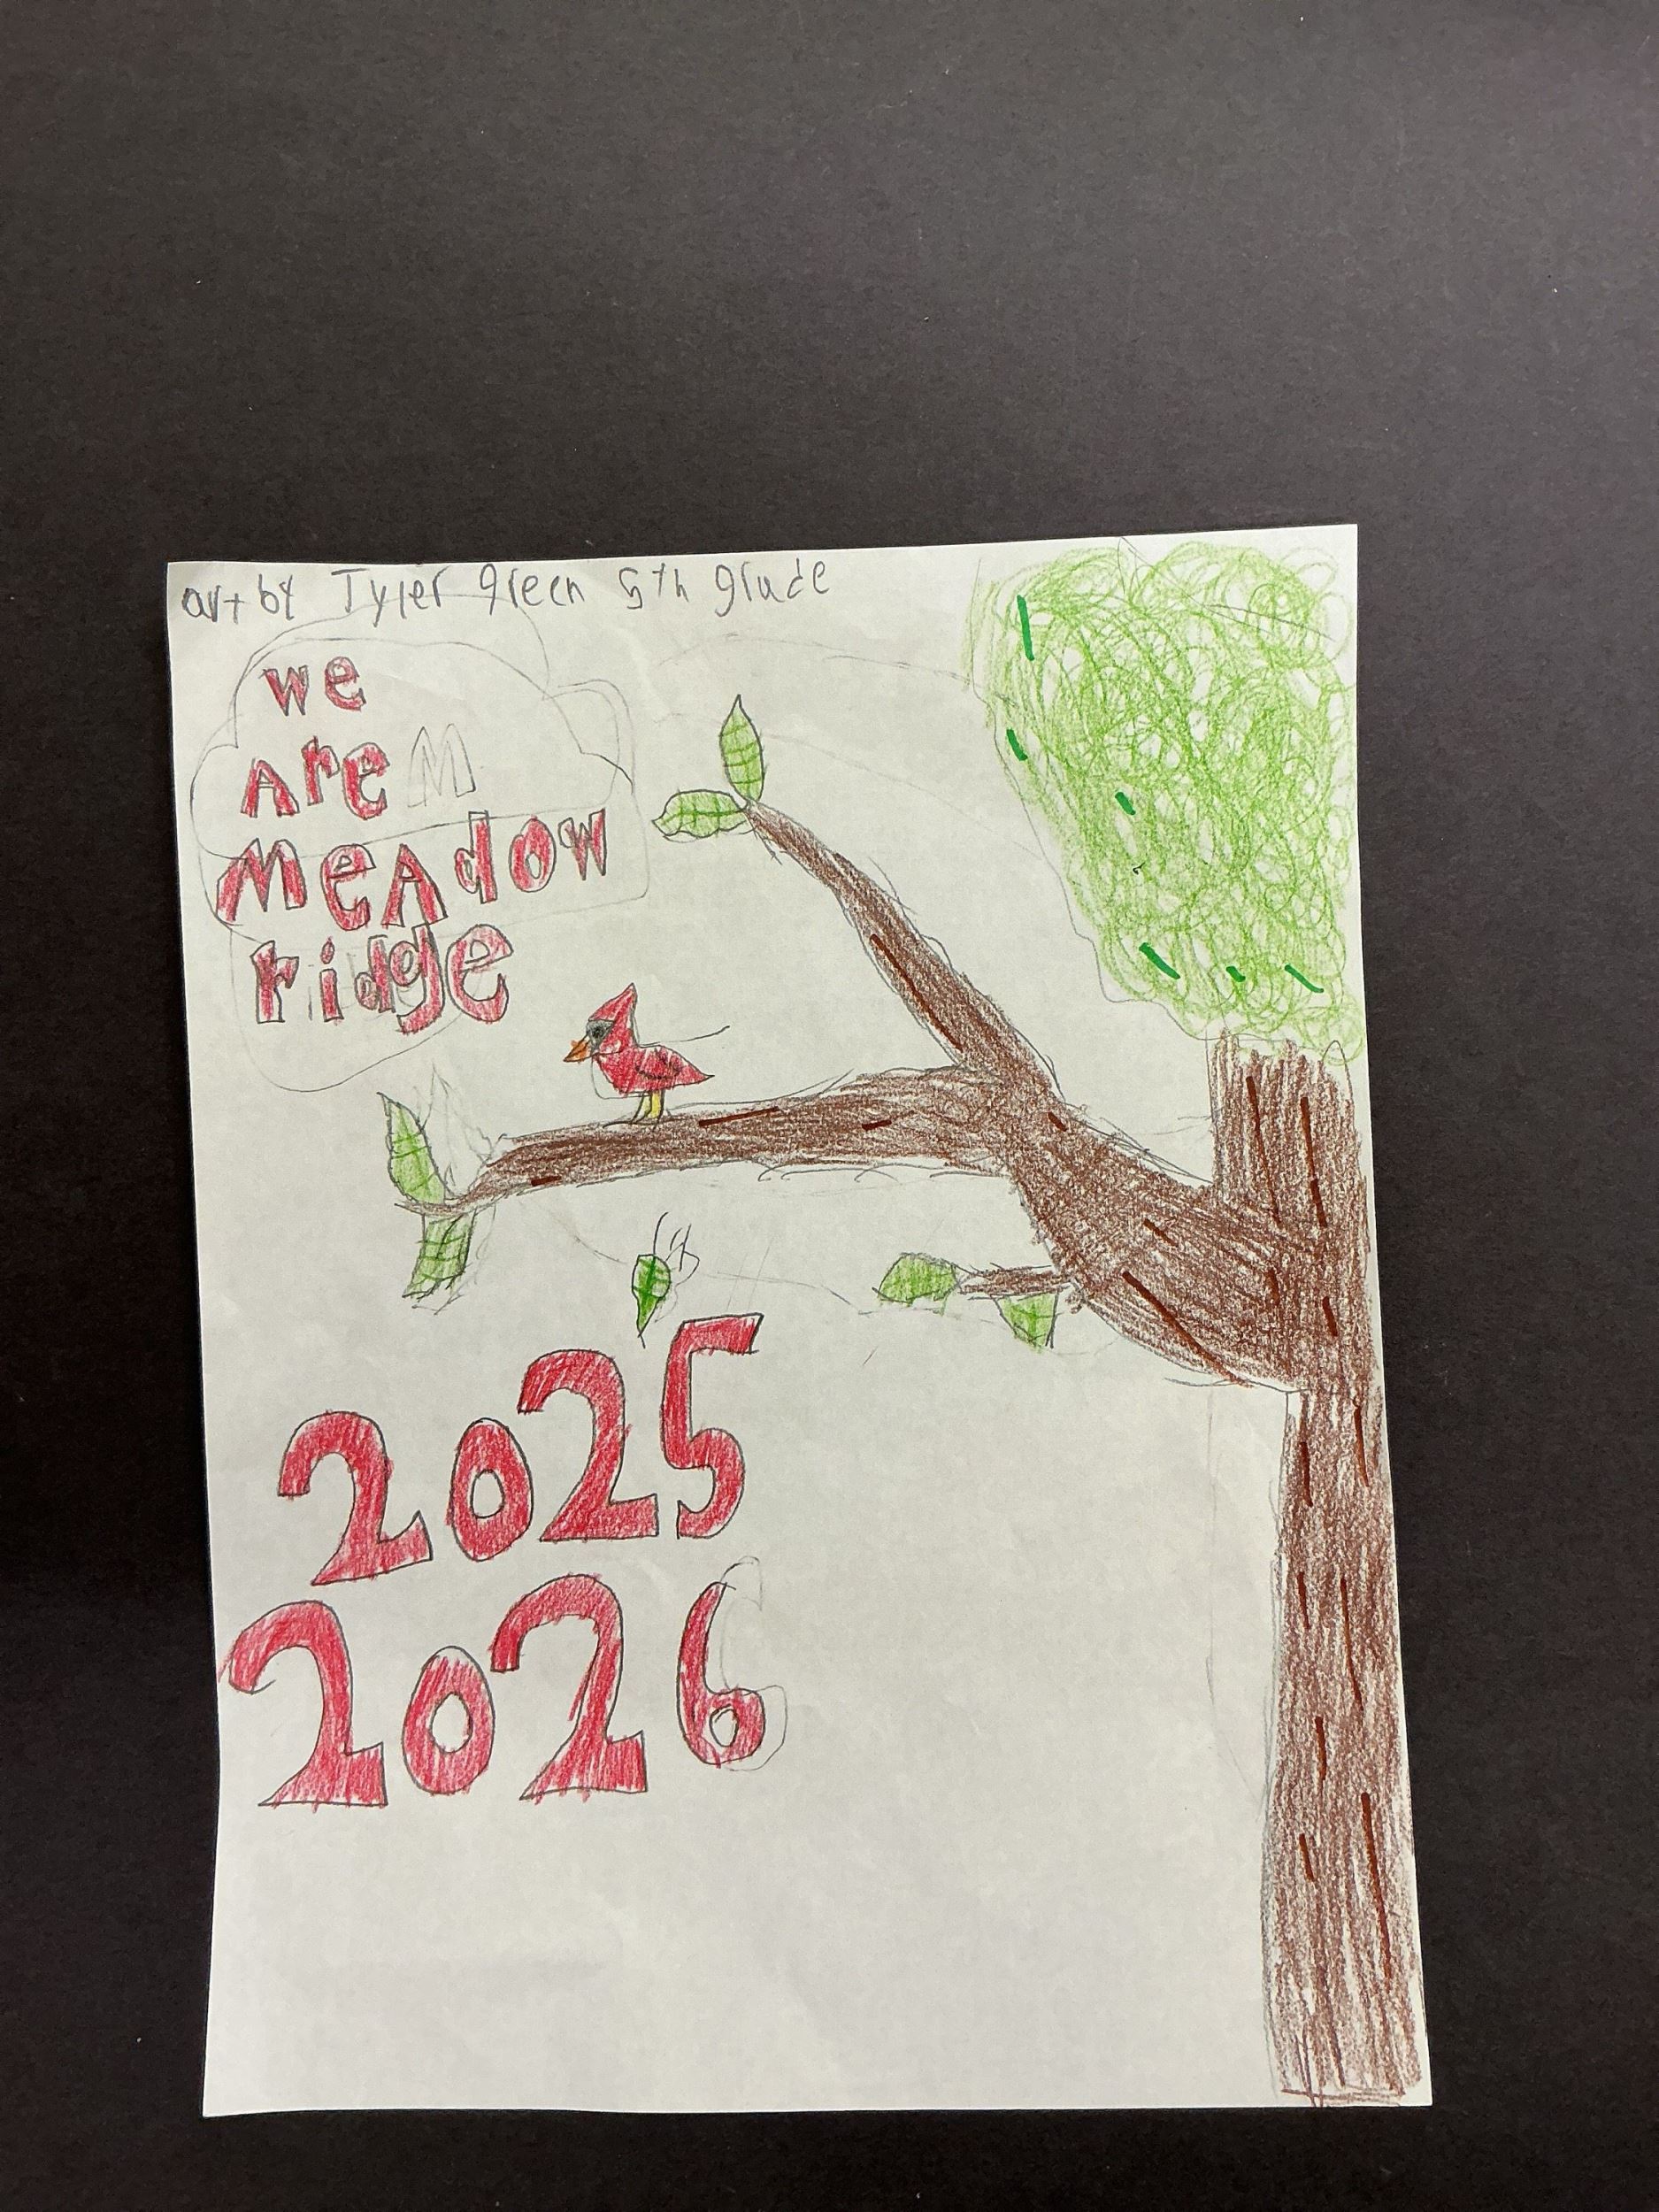 art by Tyler green 5th grade
we
Are M
MeAdow
ridge
2025
2026